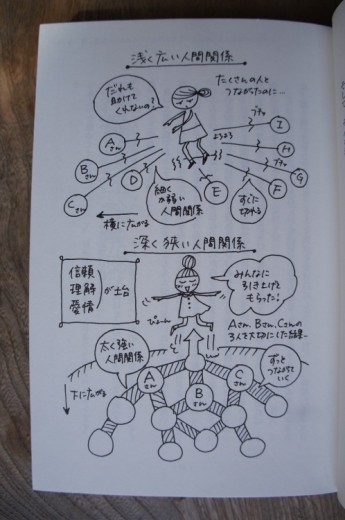 浅く広い人間関係
だれも
助けて
くれないの?
たくさんの人と
つながったのに…
ブチッ
I
A
さん
H
よろよろ
B
さん
ブチッ
G
C
さん
D
E
F
細く
か弱い
人間関係
すぐに
切れる
横に広がる
深く狭い人間関係
信頼
理解
愛情
が土台
みんなに
引き上げて
もらった!
ぴょーん
Aさん、Bさん、Cさんの
3人を大切にした結果…
太く強い
人間関係
ずっと
つながって
いく
A
さん
B
さん
C
さん
下に広がる